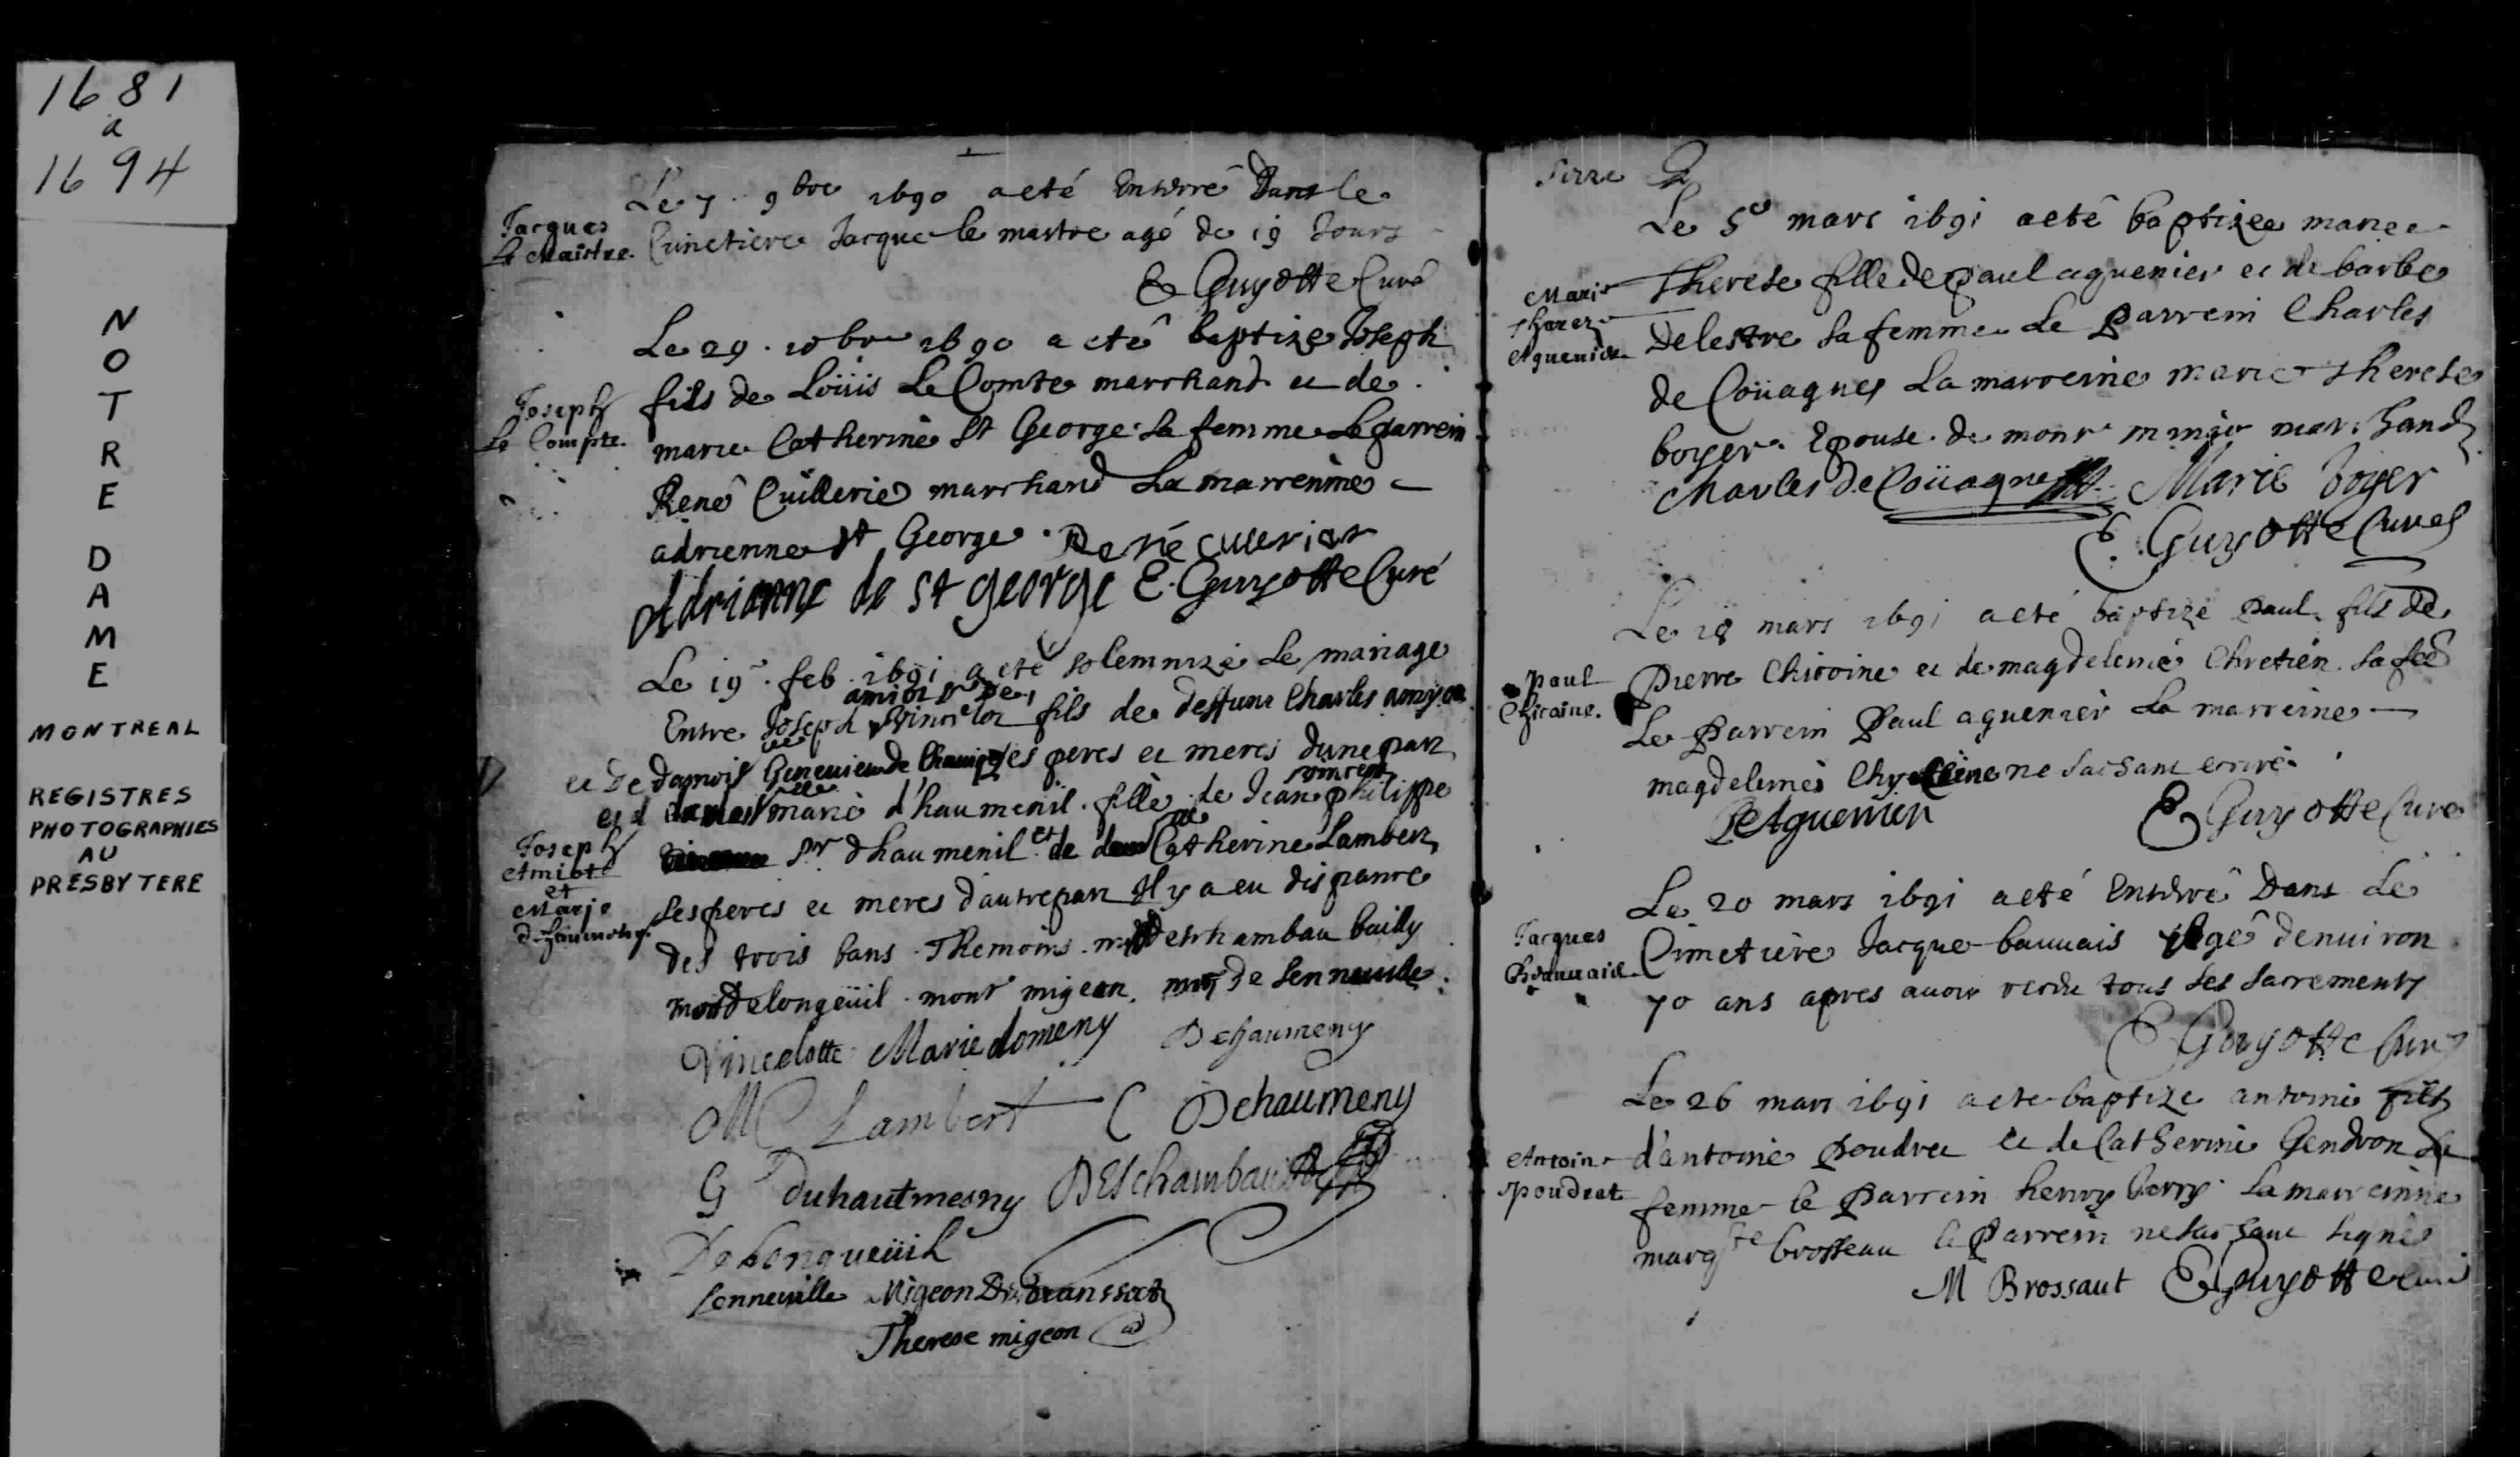 1681
a
1694
NOTRE
DAME
MONTREAL
REGISTRES
PHOTOGRAPHIES
AU
PRESBYTERE
Le 7 . 9bre 1690 a eté Enterré Dans le
Cimetiere Jacque le maitre agé de 19 Jours
Jacques
Le Maistre.
E Guyotte Curé
Le 29 . 10bre 1690 a eté baptize Joseph
fils de Loüis Le Comte marchand et de
marie Catherine St George sa femme Le parrein
René Cuillerie marchand La marreinne
adrienne St George . René cullerier
Joseph
Le Compte.
Adrianne de st george E. Guyotte Curé
Le 19e . feb . 1691 a eté solemnizé Le mariage
amiot Sr De
Entre Joseph Vincelot fils de deffunt Charles amyot
et De damois Geneuieue de Chauigny ses peres et meres dune part
et d marie d'haumenil . fille de Jean vincent philippe
Sr dhaumenil et de Catherine Lambert
ses peres et meres d'autre part Il y a eu dispance
des trois bans . Themoins . mr deschambau bailly
monr de longeüil . monr migeon . mr de senneuile .
Joseph
Amiot
et
Marie
Vincelotte Marie domeny Dehaumeny
M Lambert C Dehaumeny
G Duhautmesny DEschambault
De Longueüil
Senneuille Migeon De Branssat
Therese migeon
Le 5e mars 1691 a eté baptizee marie
Therese fille de paul aguenier et de barbe
Delestre sa femme Le Parrein Charles
de Coüagnes La marreine marie Therese
boyer Epouse de monr marchand
Marie
Therez
Aguenier
Charles de Coüagne Marie boyer
E. Guyotte Curé
Le 18 mars 1691 a eté baptizé Paul fils de
Pierre Chicoine et de magdelene Chretien sa fe
Le Parrein Paul aguenier La marreine
magdelene Chretiene ne sachant ecrire
paul
Chicoine.
P Aguenier E Guyotte Curé
Le 20 mars 1691 a eté Enterré Dans Le
Cimetiere Jacque bauuais agé denuiron
70 ans apres auoir recu tous ses sacrements
Jacques
Beauuais
E Guyotte Curé
Le 26 mars 1691 a eté baptize antoine fils
d'antoine Poudret et de Catherine Gendron sa
femme le Parrein henry La marreinne
margte brosseau le Parrein ne sachant signer
Antoine
Poudret
M Brossaut E Guyotte Curé